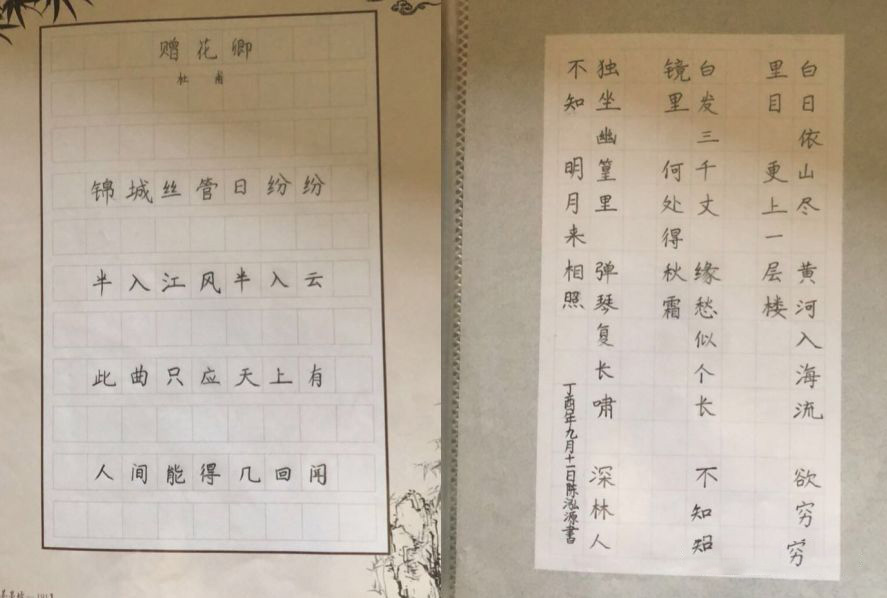 赠花卿
杜甫
锦城丝管日纷纷
半入江风半入云
此曲只应天上有
人间能得几回闻
白日依山尽 黄河入海流 欲穷穷
里目 更上一层楼
白发三千丈 缘愁似个长 不知
镜里 何处得秋霜
独坐幽篁里 弹琴复长啸 深林人
不知 明月来相照
丁酉年九月十一日陈泓源书